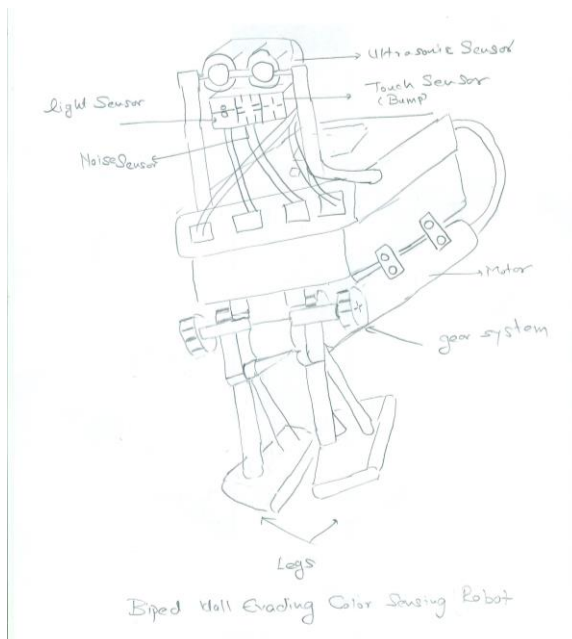 Ultrasonic Sensor
Touch Sensor
(Bump)
light Sensor
Noise Sensor
Motor
gear system
Legs
Biped Wall Evading Color Sensing Robot